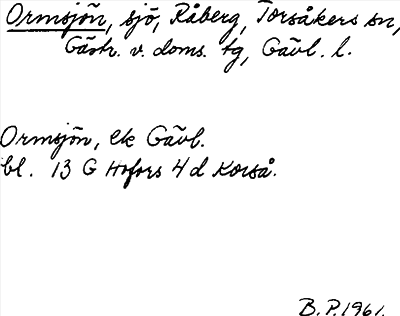 Ormsjön, sjö, Råberg, Torsåkers sn,
Gästr. v. doms. tg, Gävl. l.
Ormsjön, ek Gävl.
bl. 13 G Hofors 4 d Korså.
B.P. 1961.